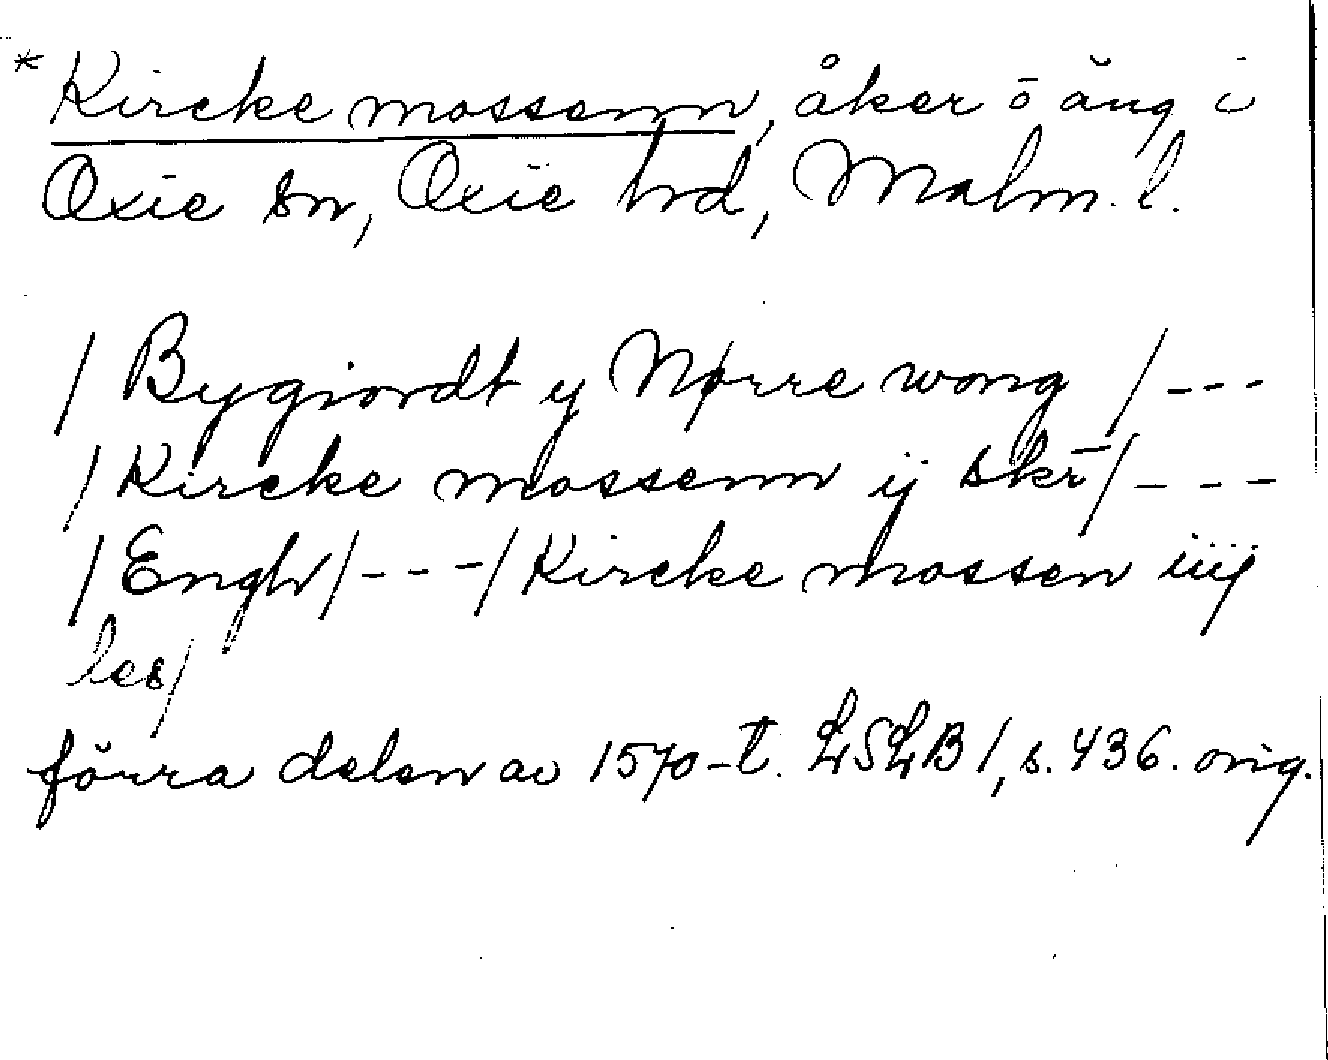 * Kircke mossenn, åker o äng i
Oxie sn, Oxie hrd, Malm. l.
/ Bygiordt y Nørre wong / ---
/ Kircke mossenn ij skr̄ / ---
/ Engh / --- / Kircke mossen iiij
les /
förra delen av 1570-t. LSLB 1, s. 436. orig.